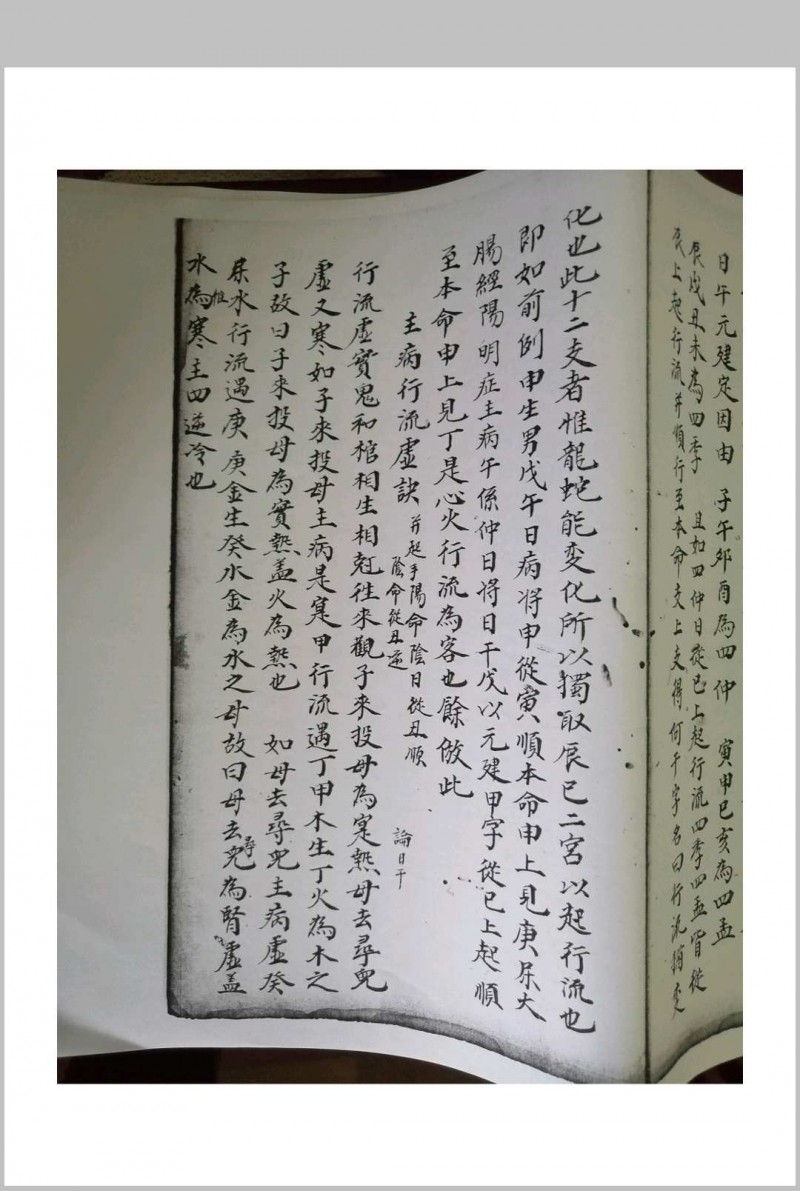 日午元建定因由 子午夘酉為四仲 寅申巳亥為四孟
辰戌丑未為四季 且如四仲日從巳上起行流四季四孟皆從
辰上起行流并順行至本命支上支得何干字名曰行流稍変
化也此十二支者惟龍蛇能変化所以獨取辰巳二宮以起行流也
即如前例申生男戊午日病将申從寅順本命申上見庚屎大
腸經陽明症主病午係仲日将日干戊以元建甲字從巳上起順
至本命申上見丁是心火行流為客也餘倣此
主病行流虛訣 并起手陽命陰日從丑順
陰命從丑逆
論日干
行流虛實鬼和棺相生相尅徃來觀子來投母為寔熱母去尋兒
虛又寒如子來投母主病是寔甲行流遇丁甲木生丁火為木之
子故曰子來投母為實熱盖火為熱也 如母去尋兒主病虛癸
屎水行流遇庚庚金生癸水金為水之母故曰母去尋兒為腎虛盖
水為寒主四逆冷也